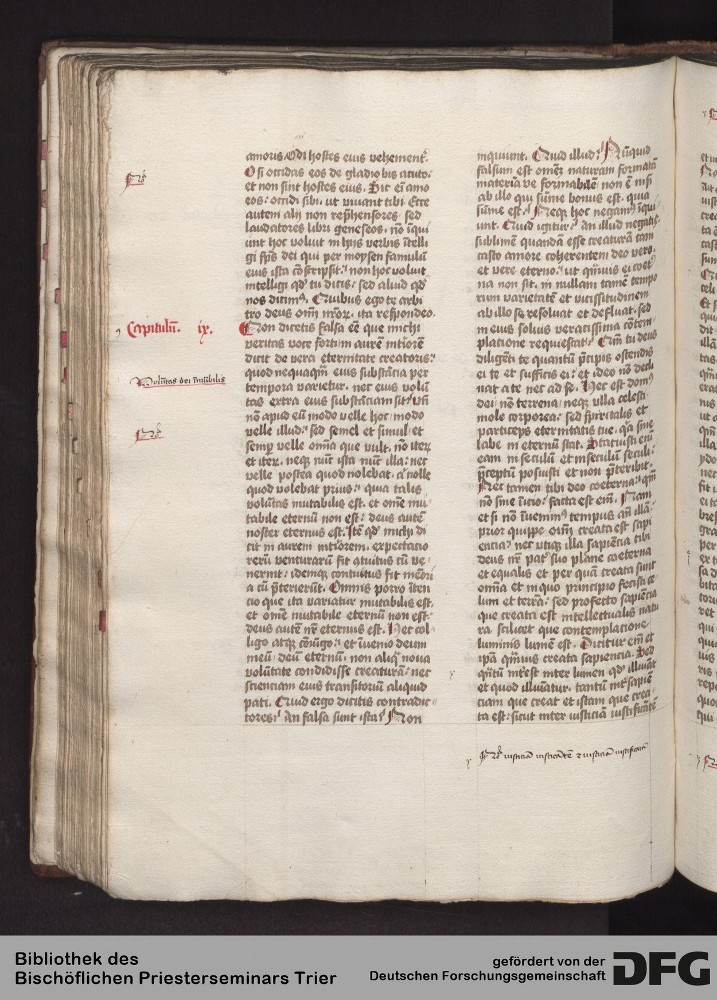 amoris. Odi hostes eius vehementer.
O si occidas eos de gladio bis acuto:
et non sint hostes eius. Sic enim amo
eos occidi sibi. ut vivant tibi. Ecce
autem alij non reprehensores sed
laudatores libri geneseos. non inqui
unt hoc voluit in hijs verbis intelli
gi spiritus dei qui per moysen famulum
eius ista conscripsit. non hoc voluit
intelligi quod tu dicis. sed aliud quod
nos dicimus. Quibus ego te arbi
tro deus omnium nostrorum. ita respondeo.
Capitulum. ix.
Non dicetis falsa esse que michi
veritas voce forti in aurem interiorem
dicit de vera eternitate creatoris.
quod nequaquam eius substancia per
tempora varietur. nec eius volun
tas extra eius substanciam sit. Unde
non eum modo velle hoc modo
velle illud. sed semel et simul et
semper velle omnia que vult. non iterum
et iterum. neque nunc ista nunc illa. nec
velle postea quod nolebat. aut nolle
quod volebat prius. quia talis
voluntas mutabilis est. et omne mu
tabile eternum non est. deus autem
noster eternus est. Item quod michi di
cit in aurem interiorem. expectacio
rerum venturarum fit contuitus cum ve
nerint. idemque contuitus fit memori
a cum preterierint. Omnis porro inten
cio que ita variatur mutabilis est.
et omne mutabile eternum non est.
deus autem noster eternus est. Hec col
ligo atque coniungo. et invenio deum
meum deum eternum. non aliqua nova
voluntate condidisse creaturam. nec
scienciam eius transitorium aliquid
pati. Quid ergo dicitis contradic
tores. An falsa sunt ista. Non
Voluntas dei immutabilis
inquiunt. Quid illud. Numquid
falsum est omnem naturam formatam
materiamve formabilem non esse nisi
ab illo qui summe bonus est. quia
summe est. Neque hoc negamus inqui
unt. Quid igitur. an illud negatis.
sublimem quandam esse creaturam tam
casto amore coherentem deo vero
et vere eterno. ut quamvis ei coeter
na non sit. in nullam tamen tempo
rum varietatem et vicissitudinem
ab illo se resolvat et defluat. sed
in eius solius veracissima contem
placione requiescat. Quoniam tu deus
diligenti te quantum precipis ostendis
ei te et sufficis ei. et ideo non decli
nat a te nec ad se. Hec est domus
dei. non terrena. neque ulla celesti
mole corporea. sed spiritalis et
particeps eternitatis tue. quia sine
labe in eternum stat. Statuisti enim
eam in seculum et in seculum seculi.
preceptum posuisti et non preteribit.
Nec tamen tibi deo coeterna. quoniam
non sine inicio. facta est enim. Nam
et si non invenimus tempus ante illam.
prior quippe omnium creata est sapi
encia. nec utique illa sapiencia tibi
deus noster patri suo plane coeterna
et equalis et per quam creata sunt
omnia et in quo principio fecisti ce
lum et terram. sed profecto sapiencia
que creata est intellectualis natu
ra scilicet que contemplacione
luminis lumen est. Dicitur enim et
ipsa quamvis creata sapiencia. Sed
quantum interest inter lumen quod illuminat
et quod illuminatur. tantum inter sapien
ciam que creat et istam que crea
ta est. sicut inter iusticiam iustificantem
iusticiam iusticantem et iusticiam iustificatam
Bibliothek des
Bischöflichen Priesterseminars Trier
gefördert von der
Deutschen Forschungsgemeinschaft
DFG